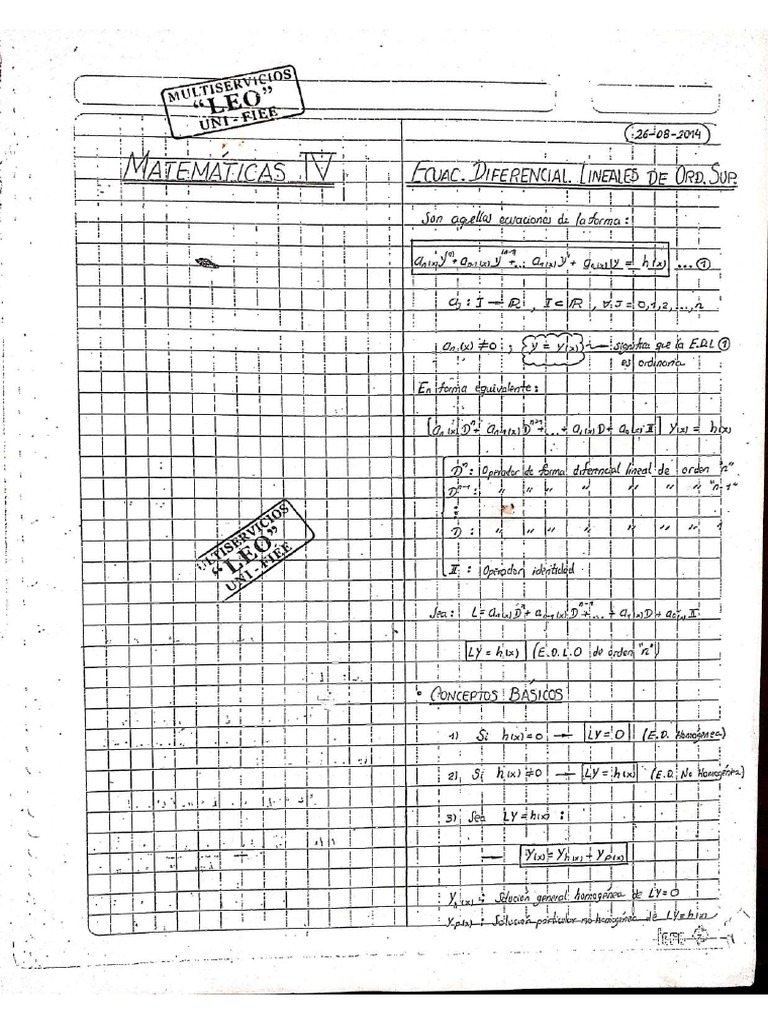 MULTISERVICIOS
"LEO"
UNI - FIEE
MATEMÁTICAS IV
ULTISERVICIOS
"LEO"
UNI - FIEE
26-08-2014
ECUAC. DIFERENCIAL LINEALES DE ORD. SUP.
Son aquellas ecuaciones de la forma:
aₙ(x) yⁿ + aₙ₋₁(x) yⁿ⁻¹ + ... a₁(x) y' + a₀(x) y = h(x) ... ①
aⱼ : I → ℝ , I ⊂ ℝ , ∀ J = 0, 1, 2, ..., n
aₙ(x) ≠ 0 ; y = y(x) → significa que la E.D.L ①
es ordinaria
En forma equivalente:
[aₙ(x) Dⁿ + aₙ₋₁(x) Dⁿ⁻¹ + ... + a₁(x) D + a₀(x) II] y(x) = h(x)
Dⁿ : Operador de forma diferencial lineal de orden "n"
Dⁿ⁻¹ : " " " " " " " "n-1"
:
D : " " " " " " "
II : Operador identidad
Sea: L = aₙ(x) Dⁿ + aₙ₋₁(x) Dⁿ⁻¹ + ... + a₁(x) D + a₀(x) II
LY = h(x) (E.D.L.O de orden "n")
• CONCEPTOS BÁSICOS
1) Si h(x) = 0 → LY = 0 (E.D. Homogénea)
2) Si h(x) ≠ 0 → LY = h(x) (E.D. No Homogénea)
3) Sea LY = h(x) :
→ Y(x) = Yh(x) + Yp(x)
Yh(x) : Solución general homogénea de LY = 0
Yp(x) : Solución particular no homogénea de LY = h(x)